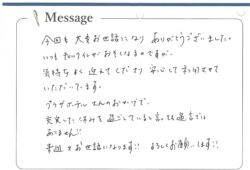 Message
今回も大変お世話になりありがとうございました。
いつもチェックインがおそくなるのですが、
気持ちよく迎えてくださり安心して利用させて
いただいています。
プラザホテルさんのおかげで、
充実した休みを過ごしていると言っても過言では
ありません!!
来週もお世話になります!! よろしくお願いします!!